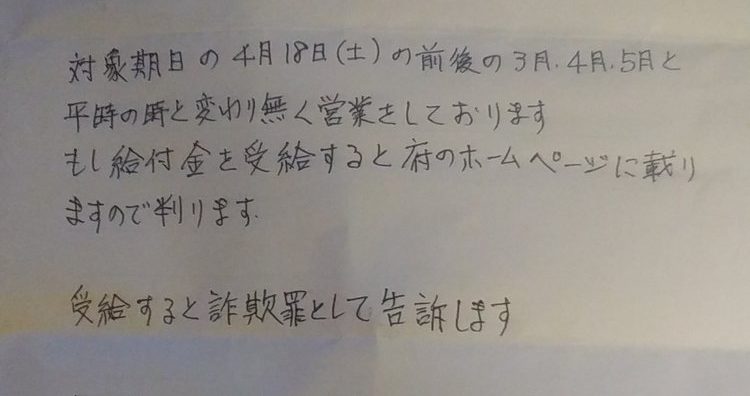 対象期日の4月18日(土)の前後の3月.4月.5月と
平時の時と変わり無く営業をしております
もし給付金を受給すると府のホームページに載り
ますので判ります.
受給すると詐欺罪として告訴します